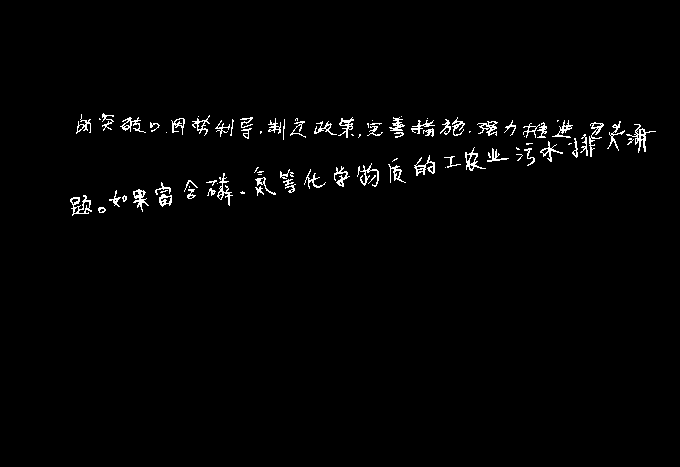 的突破口.因势利导.制定政策,完善措施.强力推进
题。如果富含磷、氮等化学物质的工农业污水排入海